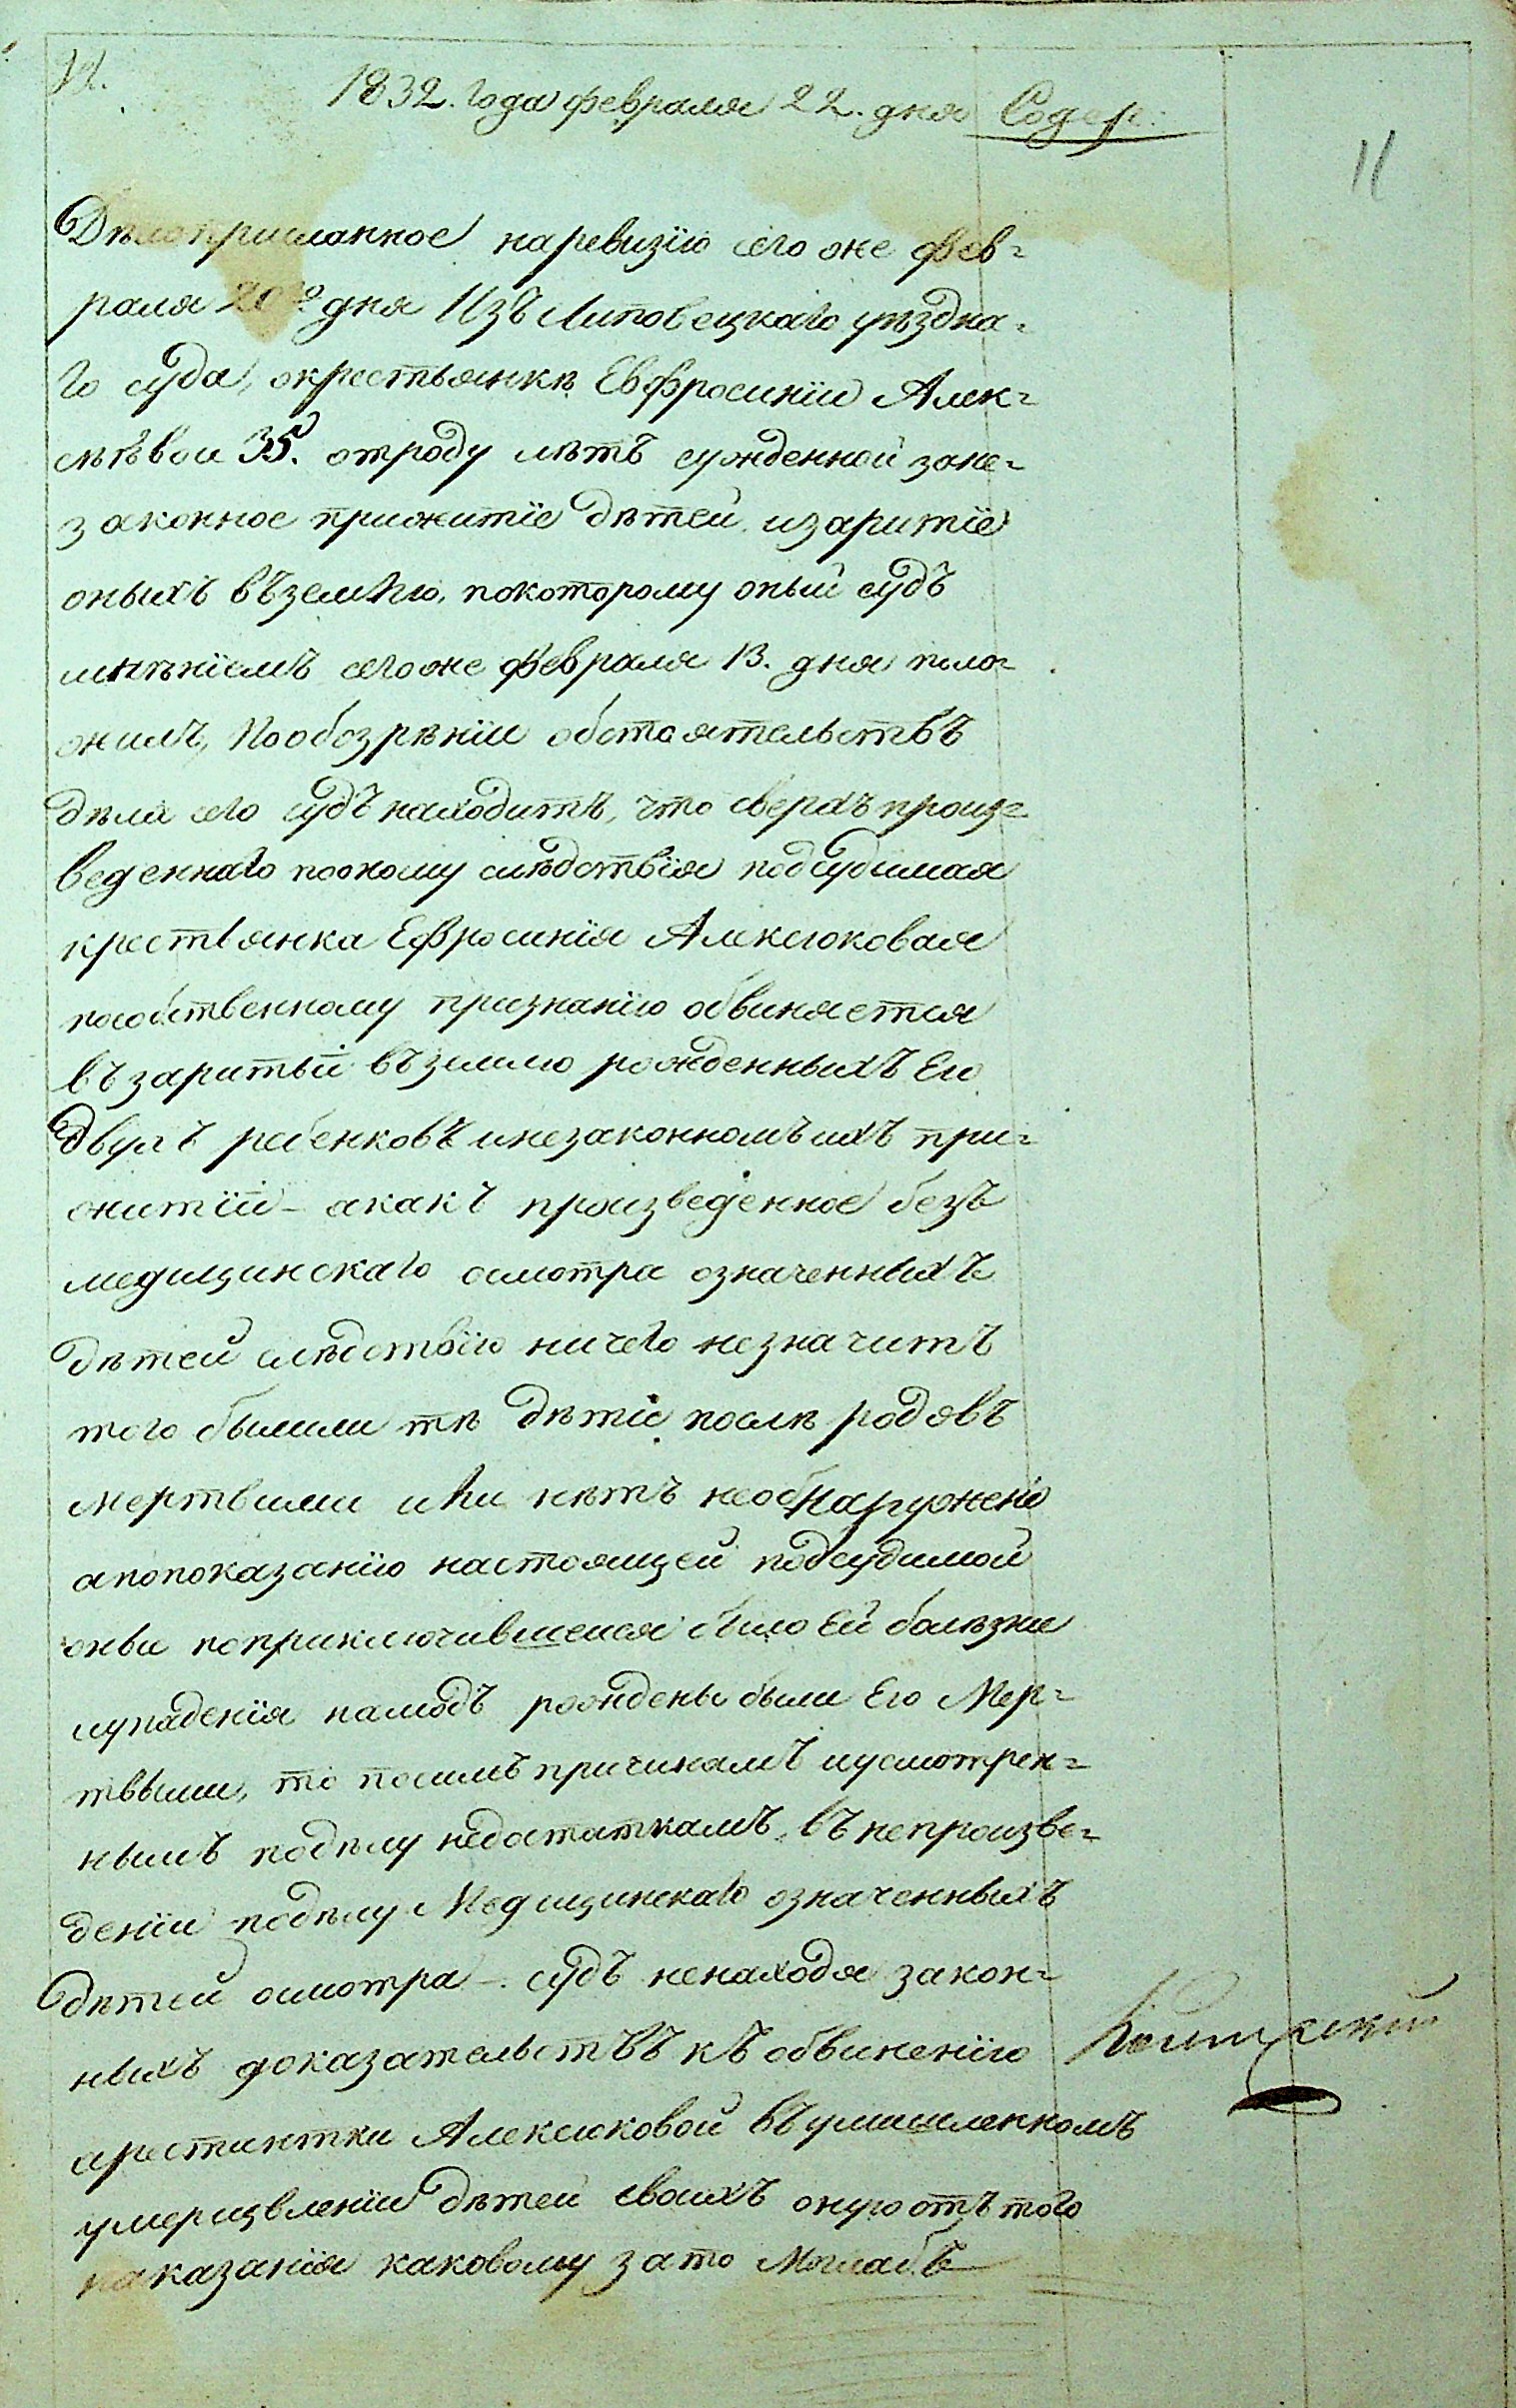 12.
1832. года февраля 22. дня Содер:
11
Дѣло присланное наревизїю сего же фев=
раля 20го дня Изъ Липовецкаго уѣздна=
го суда, окрестьянкѣ Евфросинїи Алек=
сѣѣвои 35. отроду лѣтъ сужденной зане=
законное прижитїе дѣтей изаритїе
оныхъ въземлю, покоторому оный судъ
мнѣнїемъ сегоже февраля 13. дня поло=
жилъ, Пообозрѣнїи обстоятельствъ
дѣла сего судъ находитъ, что сверхъ произ=
веденнаго пооному слѣдствїя подсудимая
крестьянка Ефросинїя Алексюковая
пособственному признанїю обвиняется
въ заритьи въземлю рожденныхъ Ею
двухъ ребенковъ инезаконномъ ихъ при=
житїи - акакъ произведенное безъ
медицинскаго осмотра означенныхъ
дѣтей слѣдствїю ничего незначитъ
того былили тѣ дѣти послѣ родовъ
мертвыми или нѣтъ необнаружено
апопоказанїю настоящей подсудимой
оныи поприключившейся было Ей болѣзни
иупаденїя налюдъ рождены были Ею Мер=
твыми, то посимъ причинамъ иусмотрен=
нымъ подѣлу недостаткамъ, въ непроизве=
денїи подѣлу Медицинскаго означенныхъ
дѣтей осмотра - судъ ненаходя закон=
ныхъ доказательствъ къ обвиненїю
арестинтки Алексюковой въумышленномъ
умерщвленїи дѣтей своихъ оную отъ того
наказанїя каковому зато Моглабъ